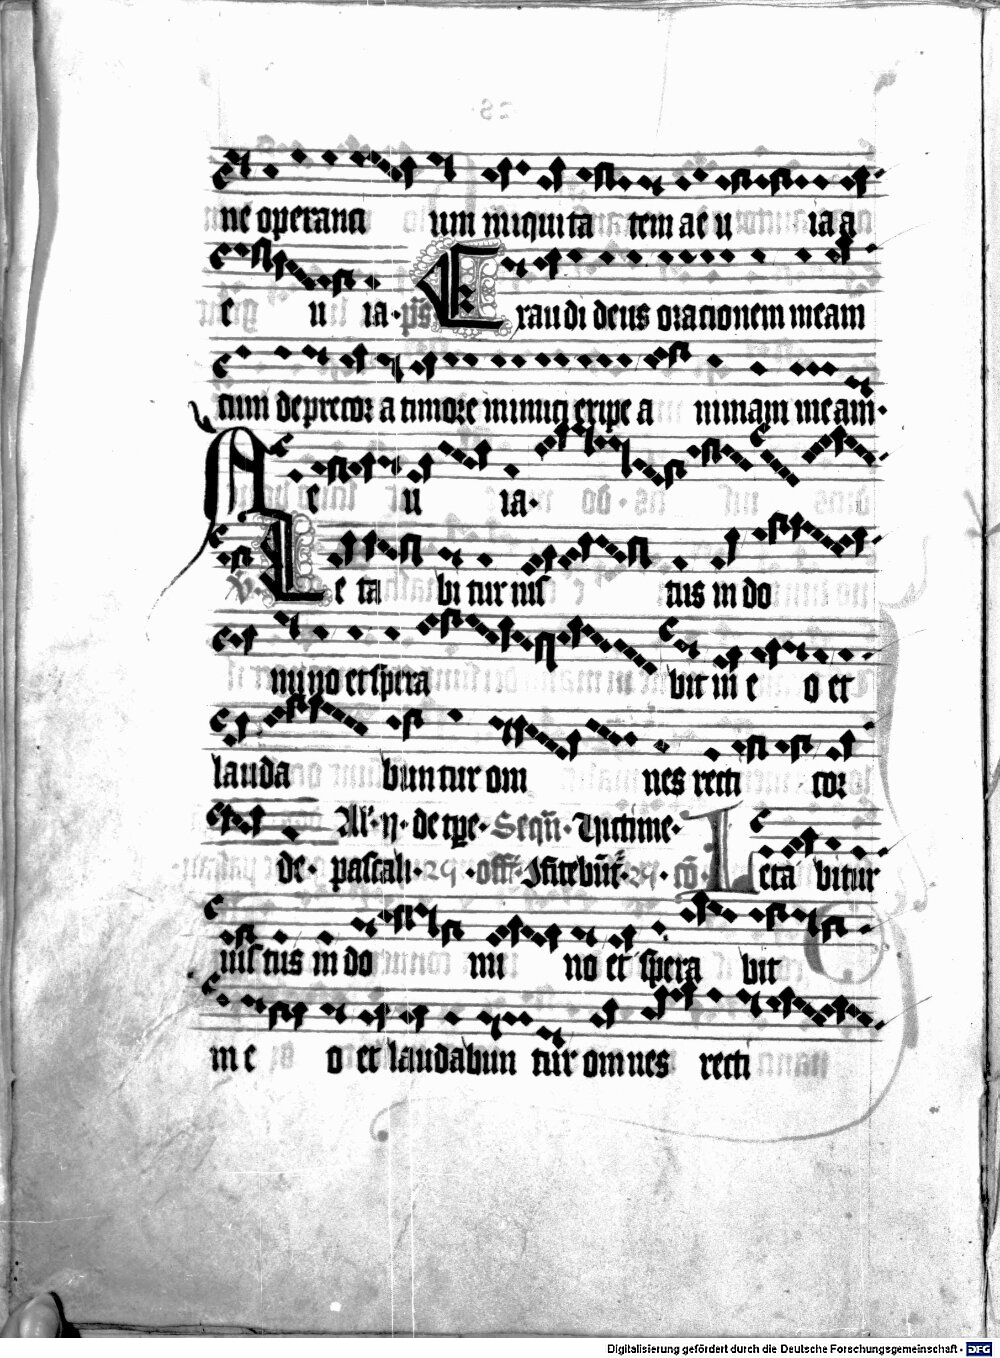 ne operanci um iniquita tem ae u ia a
e u ia· ps̄ Exaudi deus orationem meam
cum deprecor a timore inimici eripe a nimam meam·
Ae u ia·
℣. Le ta bi tur ius tus in do
mino et spera vit in e o et
lauda bun tur om nes recti cor
de· pascali· off̄· Cōfitebūt̄· cō·
Al'· ij· de tpe· Seqū· Victime·
Leta bitur
ius tus in do mi no et spera vit
in e o et laudabun tur omnes recti
Digitalisierung gefördert durch die Deutsche Forschungsgemeinschaft - DFG